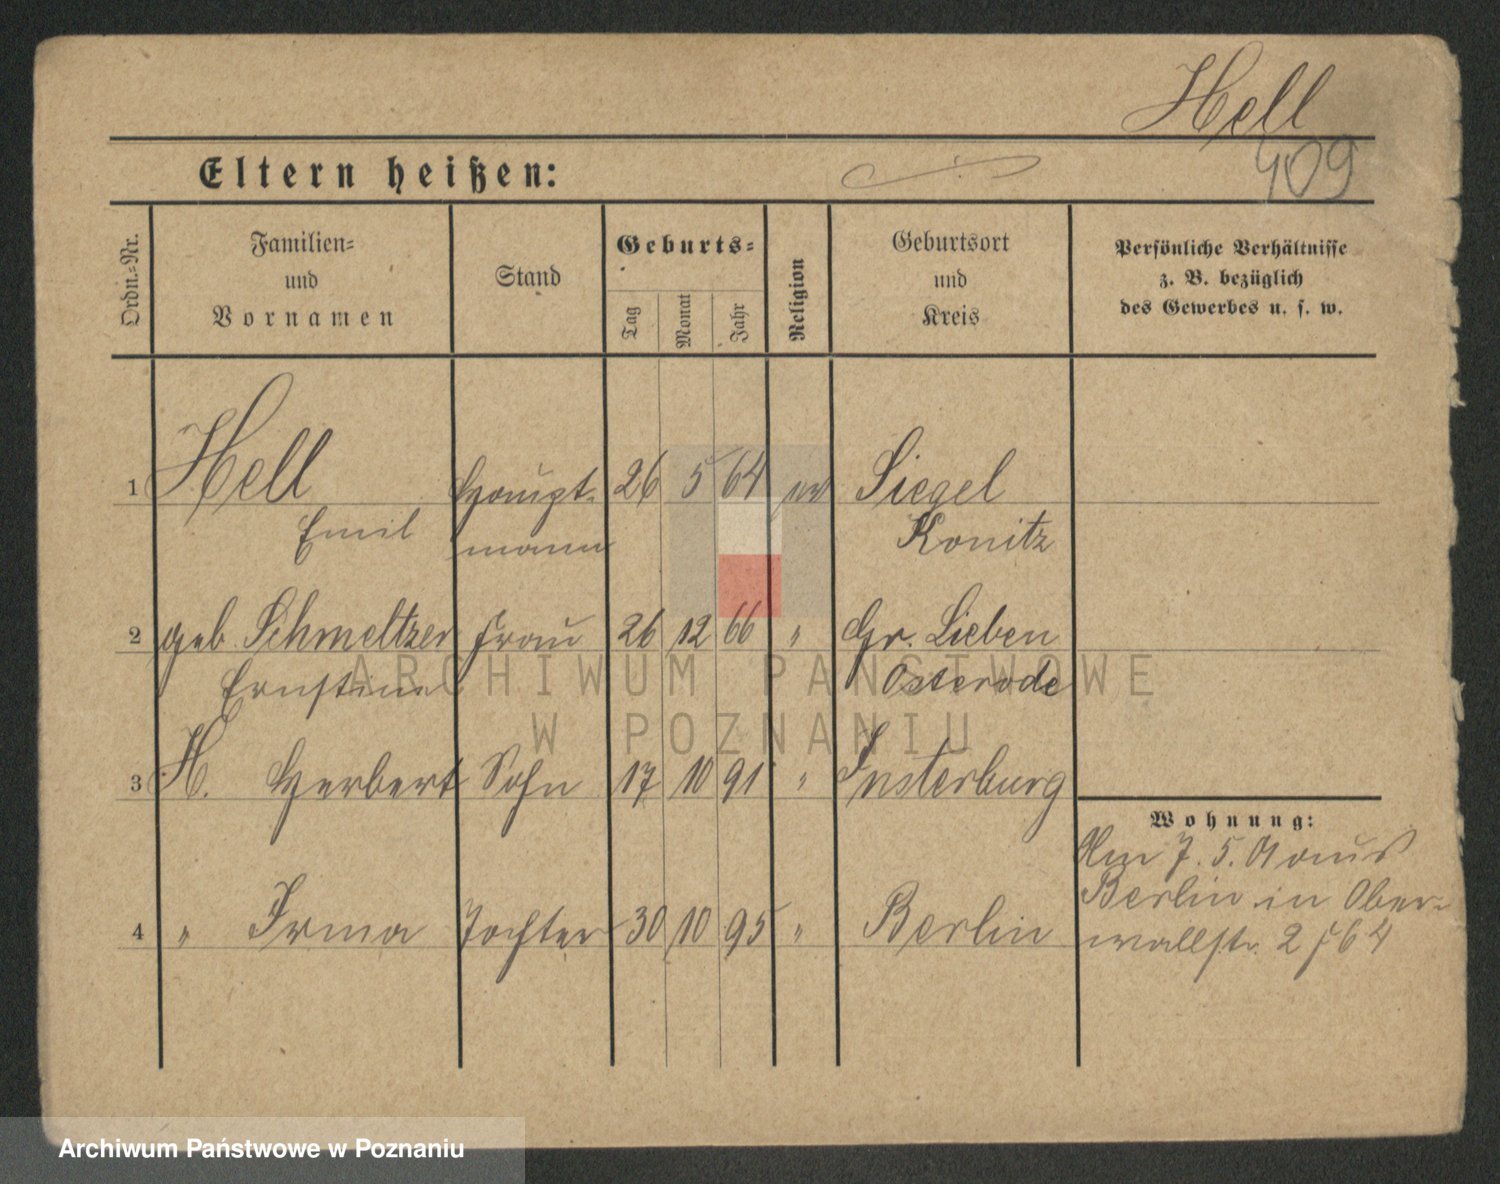 Hell
409
Eltern heißen:
Ordn.=Nr.
Familien=
und
Vornamen
Stand
Geburts=
Tag
Monat
Jahr
Religion
Geburtsort
und
Kreis
Persönliche Verhältnisse
z. B. bezüglich
des Gewerbes u. s. w.
1 Hell Haupt- 26 5 64 ev Siegel
Emil mann Konitz
2 geb. Schmeltzer Frau 26 12 66 " Gr. Lieben
Ernstine Osterode
3 H. Herbert Sohn 17 10 91 " Insterburg
4 " Irma Tochter 30 10 95 " Berlin
Wohnung:
Am 7. 5. 01 aus
Berlin in Ober-
wallstr. 2 64
ARCHIWUM PAŃSTWOWE
W POZNANIU
Archiwum Państwowe w Poznaniu